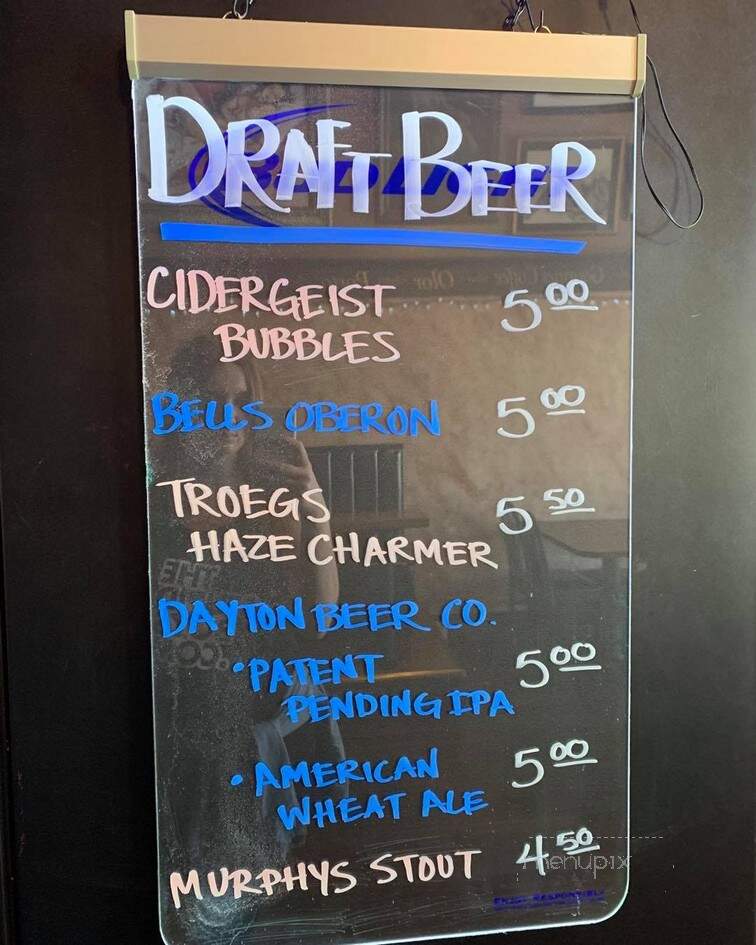 DRAFT BEER
BUD LIGHT
CIDERGEIST 5 00
BUBBLES
BELLS OBERON 5 00
TROEGS 5 50
HAZE CHARMER
DAYTON BEER CO.
• PATENT 5 00
PENDING IPA
• AMERICAN 5 00
WHEAT ALE
MURPHYS STOUT 4 50
menupix
ENJOY RESPONSIBLY